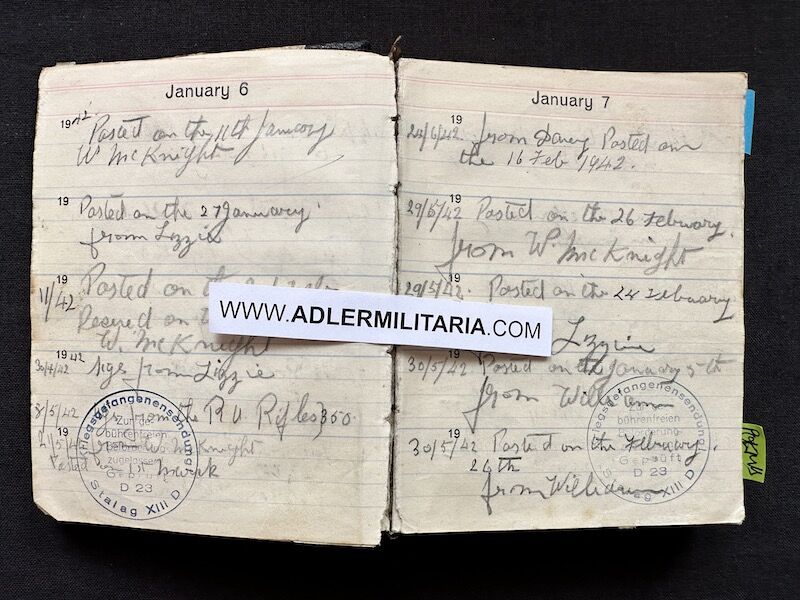 January 6
19 42. Posted on the 11th January
W McKnight
19 Posted on the 27 January.
from Lizzie
19
11/42 Posted on the
on
W. McKnight
19 42
30/4/42 from Lizzie
8/5/42 from the R U Rifles 350.
19
McKnight
Kriegsgefangenensendung
Zur
bührenfreien
Geprüft
D 23
Stalag XIII D
WWW.ADLERMILITARIA.COM
January 7
19
24/6/42 from Davy Posted on
the 16 Feb 1942.
19
29/5/42 Posted on the 26 February.
from W. McKnight
19
29/5/42. Posted on the 24 February
Lizzie
19
30/5/42 Posted on the January 5th
from William
19
30/5/42 Posted on the February.
24th
from William
Kriegsgefangenensendung
Zur
bührenfreien
Geprüft
D 23
Stalag XIII D